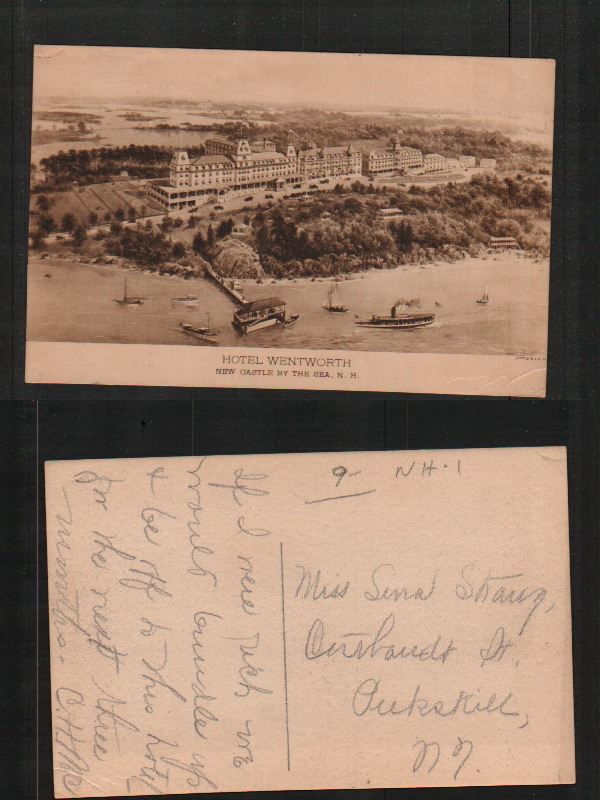 HOTEL WENTWORTH
NEW CASTLE BY THE SEA, N. H.
If I were rich we
would bundle up
& be off to this hotel
for the next three
months.
9-
NH-1
Miss Sena Strang,
St.
Peekskill,
N.Y.